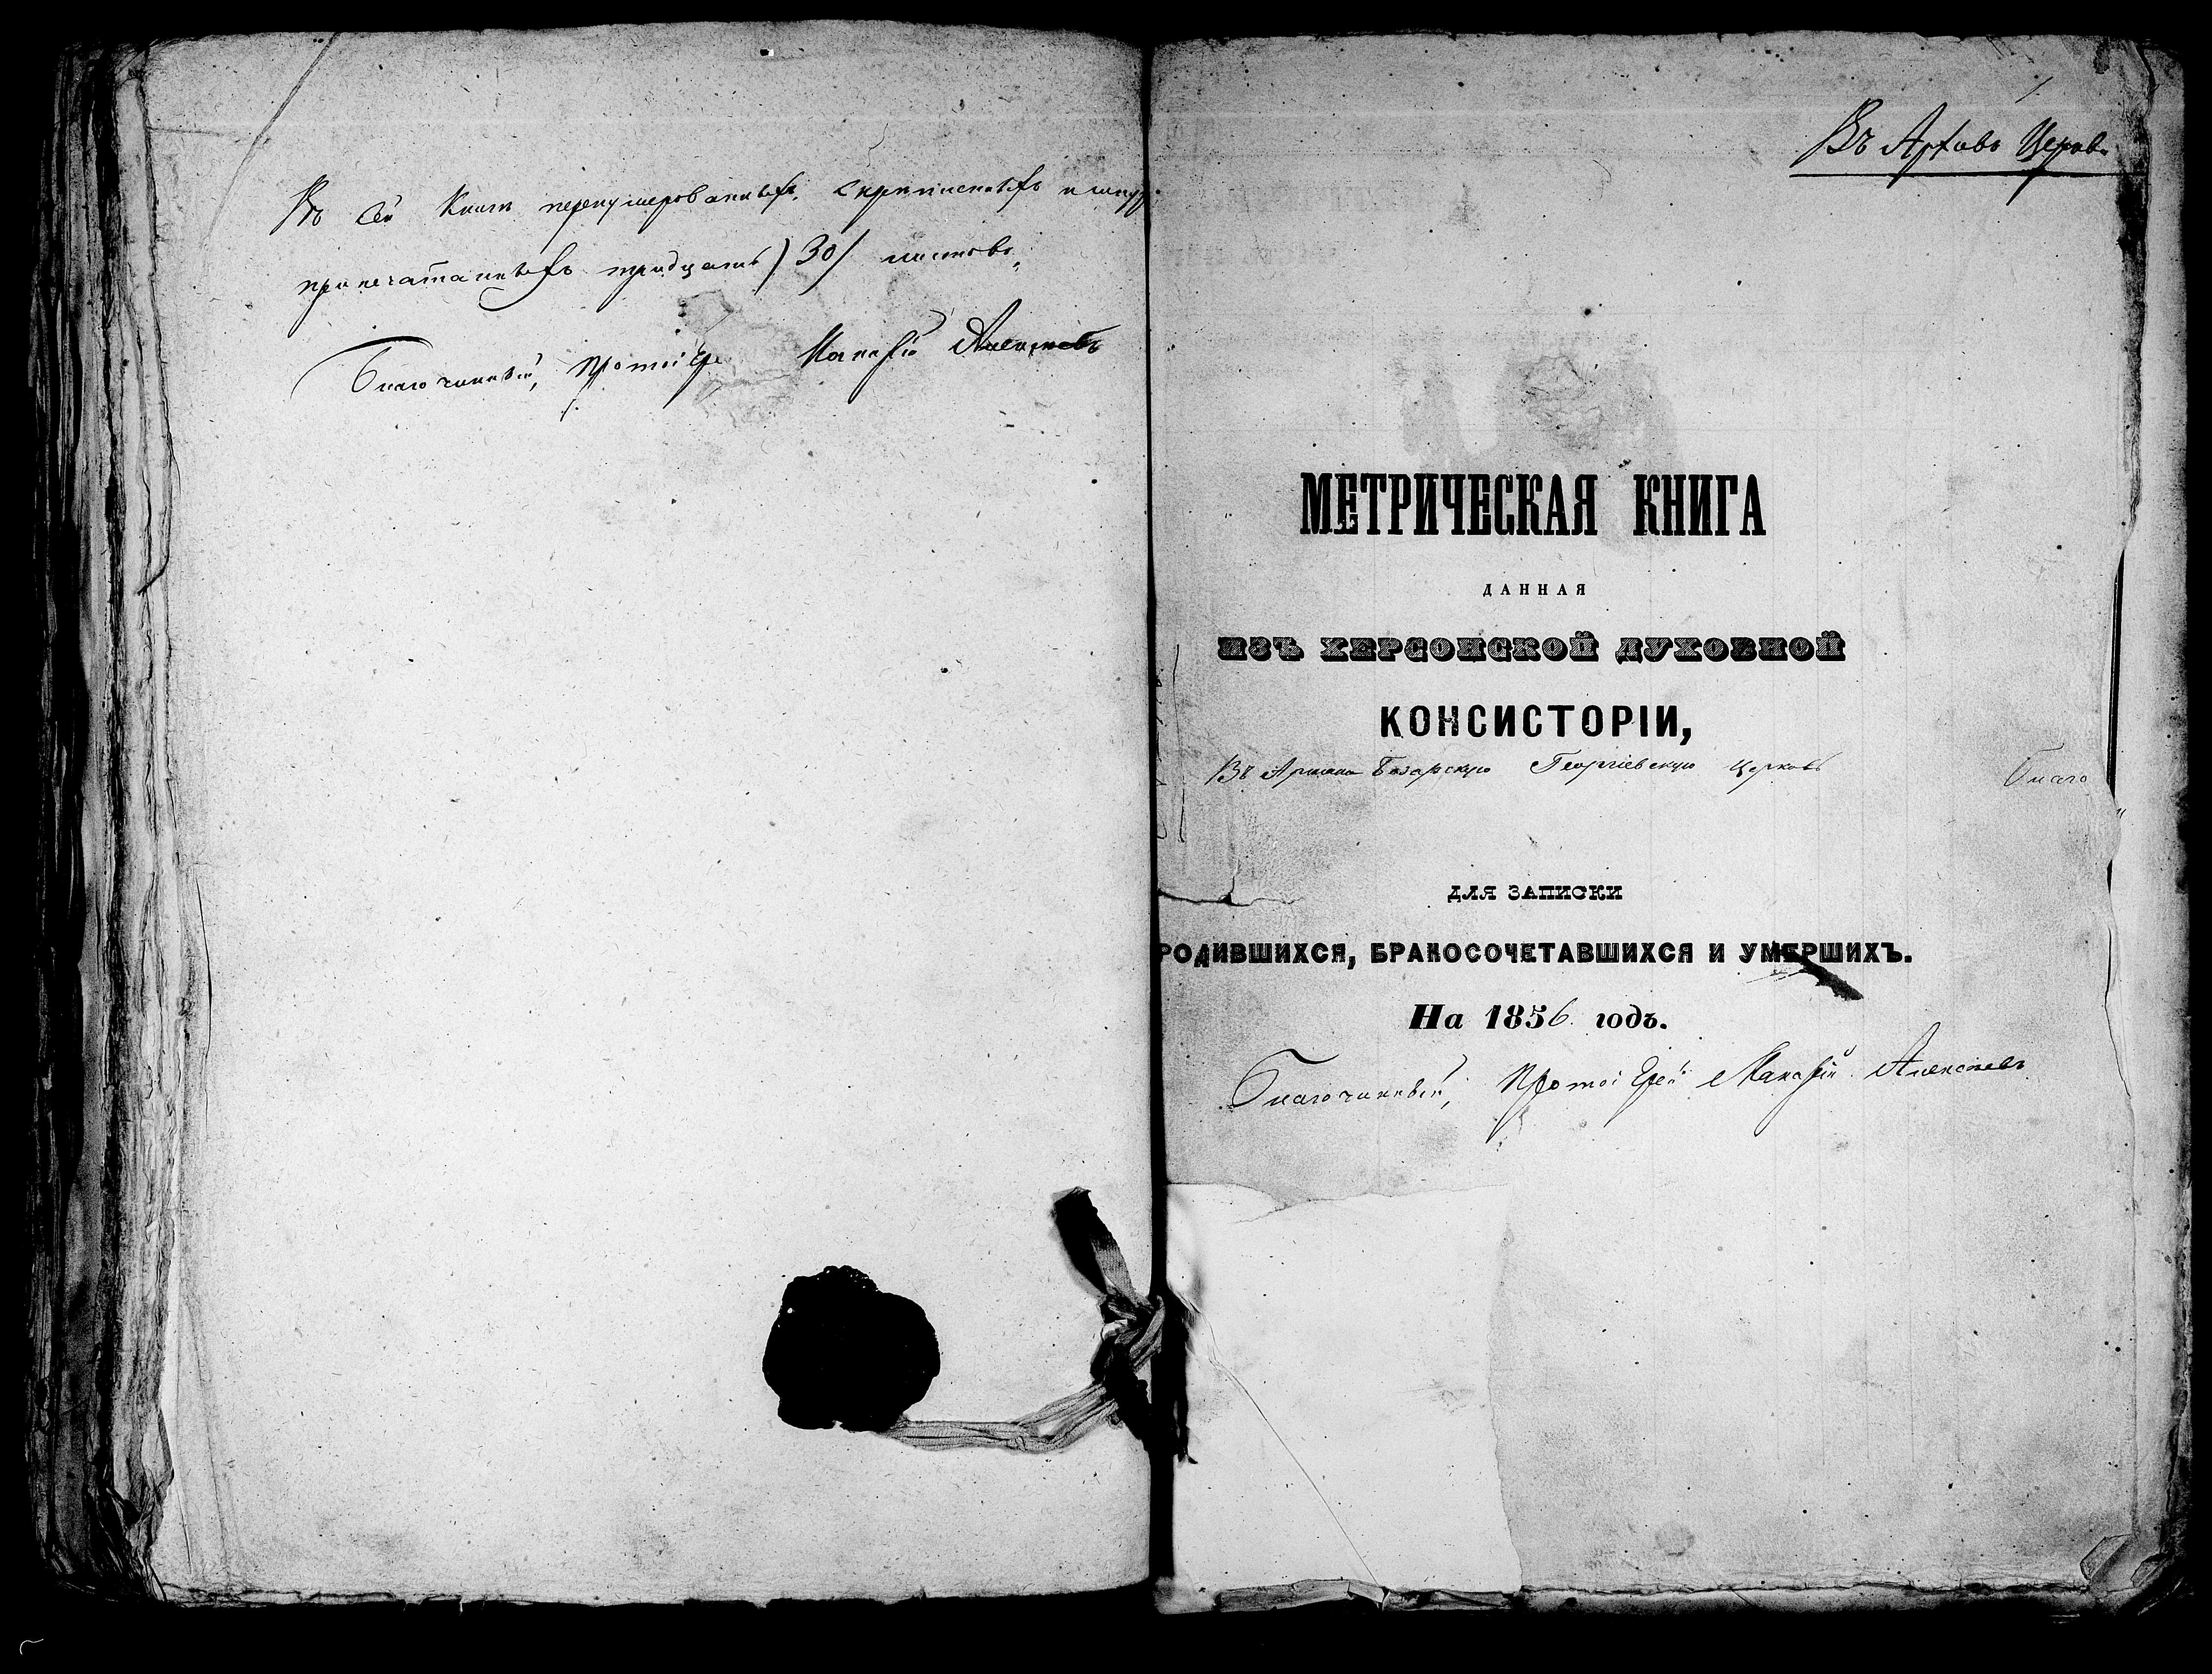 Въ сей Книгѣ перенумерованныхъ, скрѣпленныхъ и шнур
припечатанныхъ тридцать /30/ листовъ,
Благочинный, Протоіере Макарій Алексѣевъ
Въ Архивъ Церкви
МЕТРИЧЕСКАЯ КНИГА
ДАННАЯ
ИЗЪ ХЕРСОНСКОЙ ДУХОВНОЙ
КОНСИСТОРІИ,
Въ Армяно Базарскую Георгіевскую Церковь
Благо
ДЛЯ ЗАПИСКИ
РОДИВШИХСЯ, БРАКОСОЧЕТАВШИХСЯ И УМЕРШИХЪ.
На 1856 годъ.
Благочинный, Протоіерей Макарій Алексѣевъ